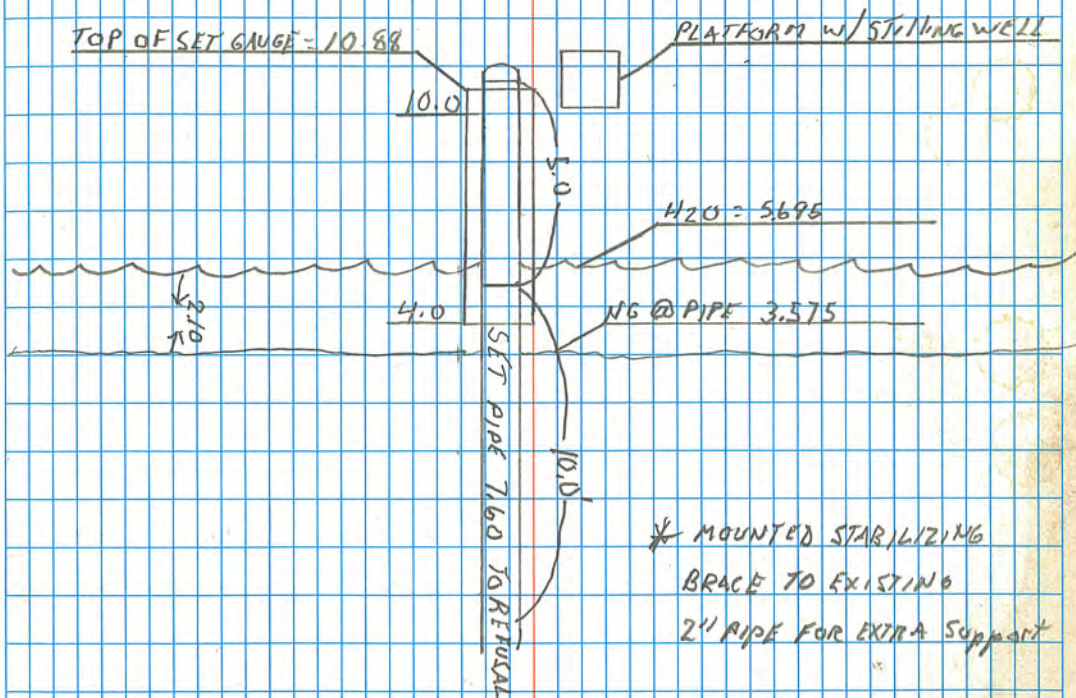 TOP OF SET GAUGE - 10.88
PLATFORM W/ STILLING WELL
10.0
5.0
H2O = 5.695
2.10
4.0
NG @ PIPE 3.575
SET PIPE 7.60 TO REFUSAL
10.0'
* MOUNTED STABILIZING
BRACE TO EXISTING
2" PIPE FOR EXTRA Support